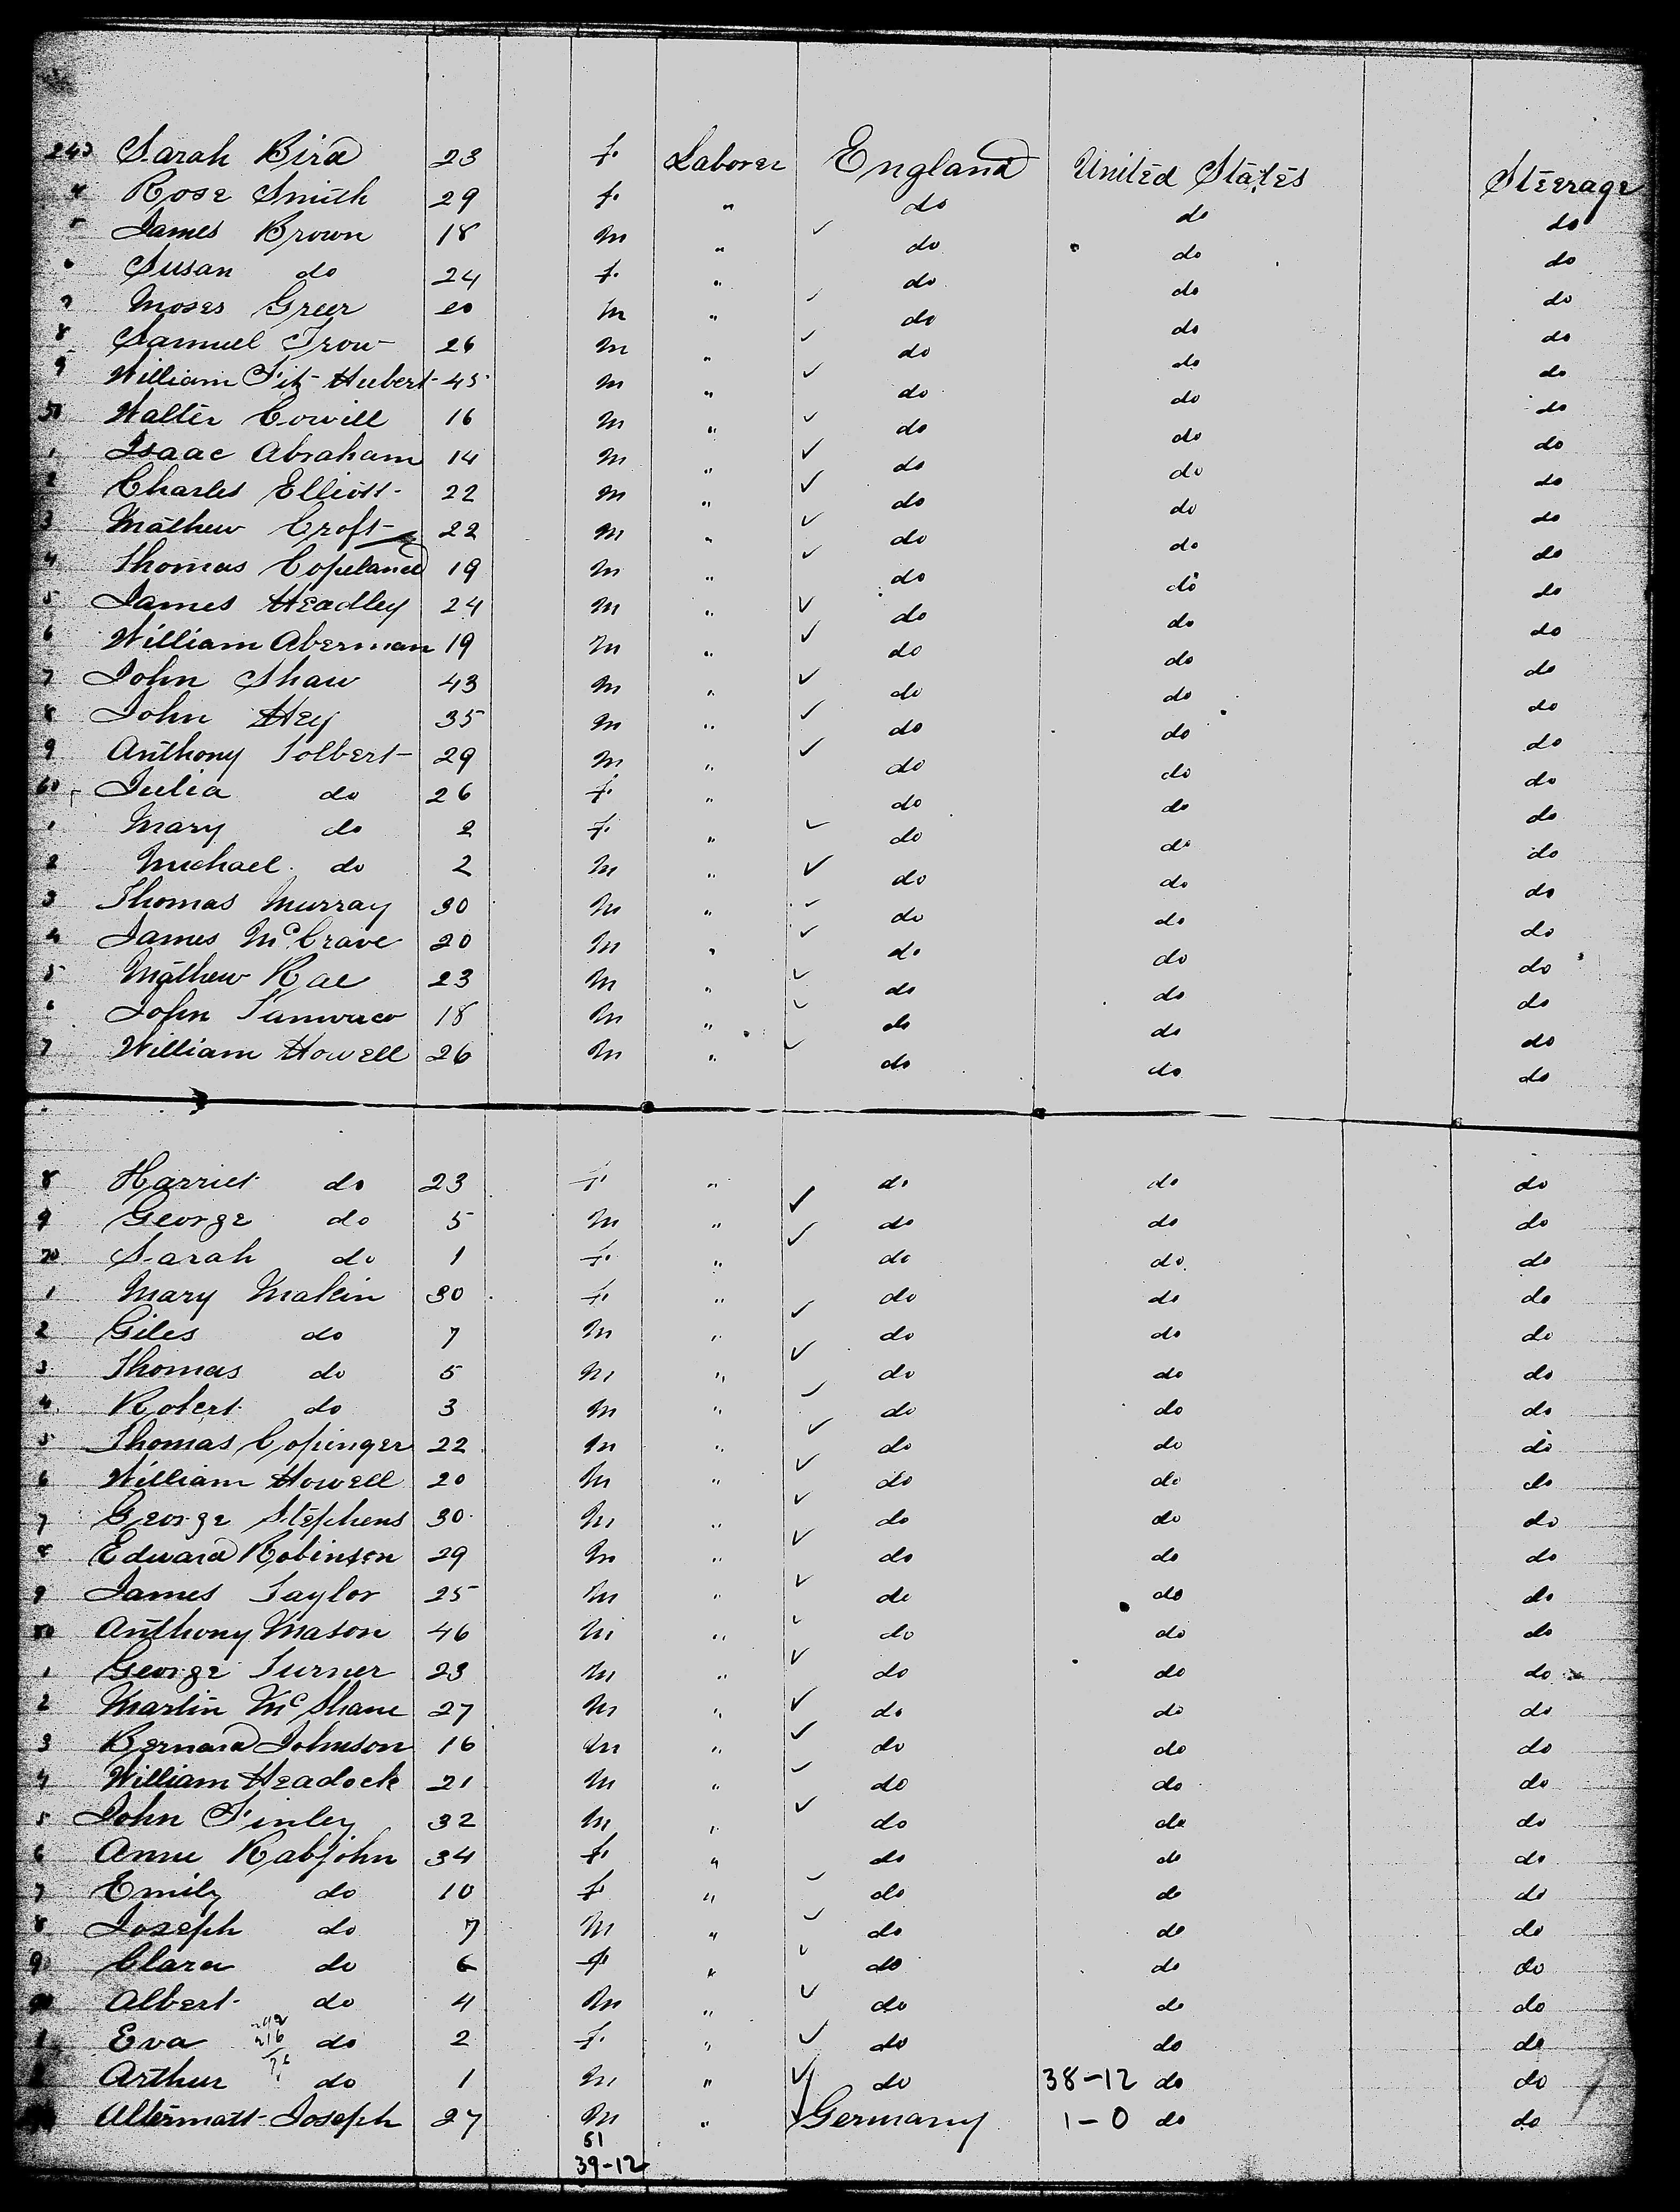 243 Sarah Bird 23 f. Laborer England United States Steerage
4 Rose Smith 29 f. " do do do
5 James Brown 18 m " do do do
6 Susan do 24 f. " do do do
7 Moses Greer 20 m " do do do
8 Samuel Trow 26 m " do do do
9 William Fitz Hubert 45 m " do do do
50 Walter Cowill 16 m " do do do
1 Isaac Abraham 14 m " do do do
2 Charles Elliott 22 m " do do do
3 Mathew Croft 22 m " do do do
4 Thomas Copeland 19 m " do do do
5 James Headley 24 m " do do do
6 William Aberman 19 m " do do do
7 John Shaw 43 m " do do do
8 John Hey 35 m " do do do
9 Anthony Tolbert 29 m " do do do
60 Julia do 26 f. " do do do
1 Mary do 2 f. " do do do
2 Michael do 2 m " do do do
3 Thomas Murray 30 m " do do do
4 James McCrave 20 m " do do do
5 Mathew Rae 23 m " do do do
6 John 18 m " do do do
7 William Howell 26 m " do do do
8 Harriet do 23 f " do do do
9 George do 5 m " do do do
70 Sarah do 1 f. " do do do
1 Mary Makin 30 f. " do do do
2 Giles do 7 m " do do do
3 Thomas do 5 m " do do do
4 Robert do 3 m " do do do
5 Thomas Copinger 22 m " do do do
6 William Howell 20 m " do do do
7 George Stephens 30 m " do do do
8 Edward Robinson 29 m " do do do
9 James Taylor 25 m " do do do
80 Anthony Mason 46 m " do do do
1 George Turner 23 m " do do do
2 Martin McShane 27 m " do do do
3 Bernard Johnson 16 m " do do do
4 William Headock 21 m " do do do
5 John Finley 32 m " do do do
6 Anne Rabjohn 34 f. " do do do
7 Emily do 10 f " do do do
8 Joseph do 7 m " do do do
9 Clara do 6 f " do do do
90 Albert do 4 m " do do do
1 Eva do 2 f. " do do do
Arthur do 1 m " do 38-12 do do
Altermatt Joseph 27 m " Germany 1-0 do do
51
39-12